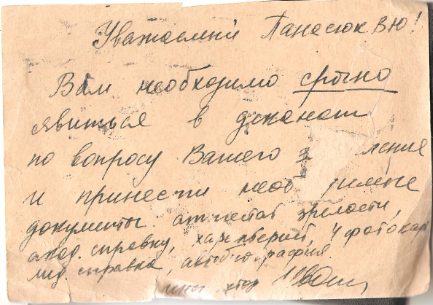 Уважаемый Панасюк В.Ю!
Вам необходимо срочно
явиться в деканат
по вопросу Вашего ления
и принести необ димые
документы аттестат зрелости,
акад. справку, 4 фотокар
мед. справка, автобиография